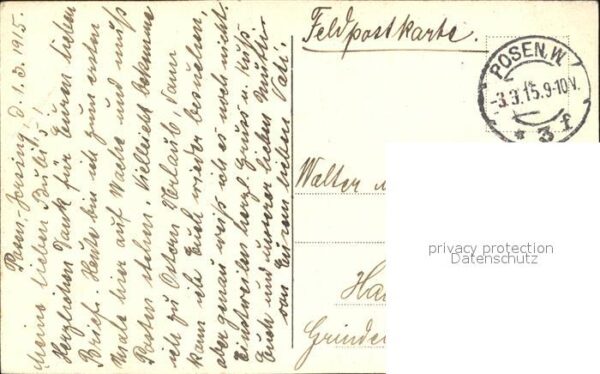 Posen-Jersing, d. 1.3.1915.
Meine lieben Bubis!
Herzlichen Dank für Euren lieben
Brief. Heute bin ich zum ersten
Male hier auf Wache und muß
Posten stehen. Vielleicht bekomme
ich zu Ostern Urlaub, dann
kann ich Euch wieder besuchen,
aber genau weiß ich es noch nicht.
Einstweilen herzl. Gruss u. Kuß
Euch und unserer lieben Mutter
von Eurem lieben Vati.
Feldpostkarte.
POSEN. W.
-3.3.15.9-10V.
* 3 f
Walter
privacy protection
Datenschutz
Ha
Grinde